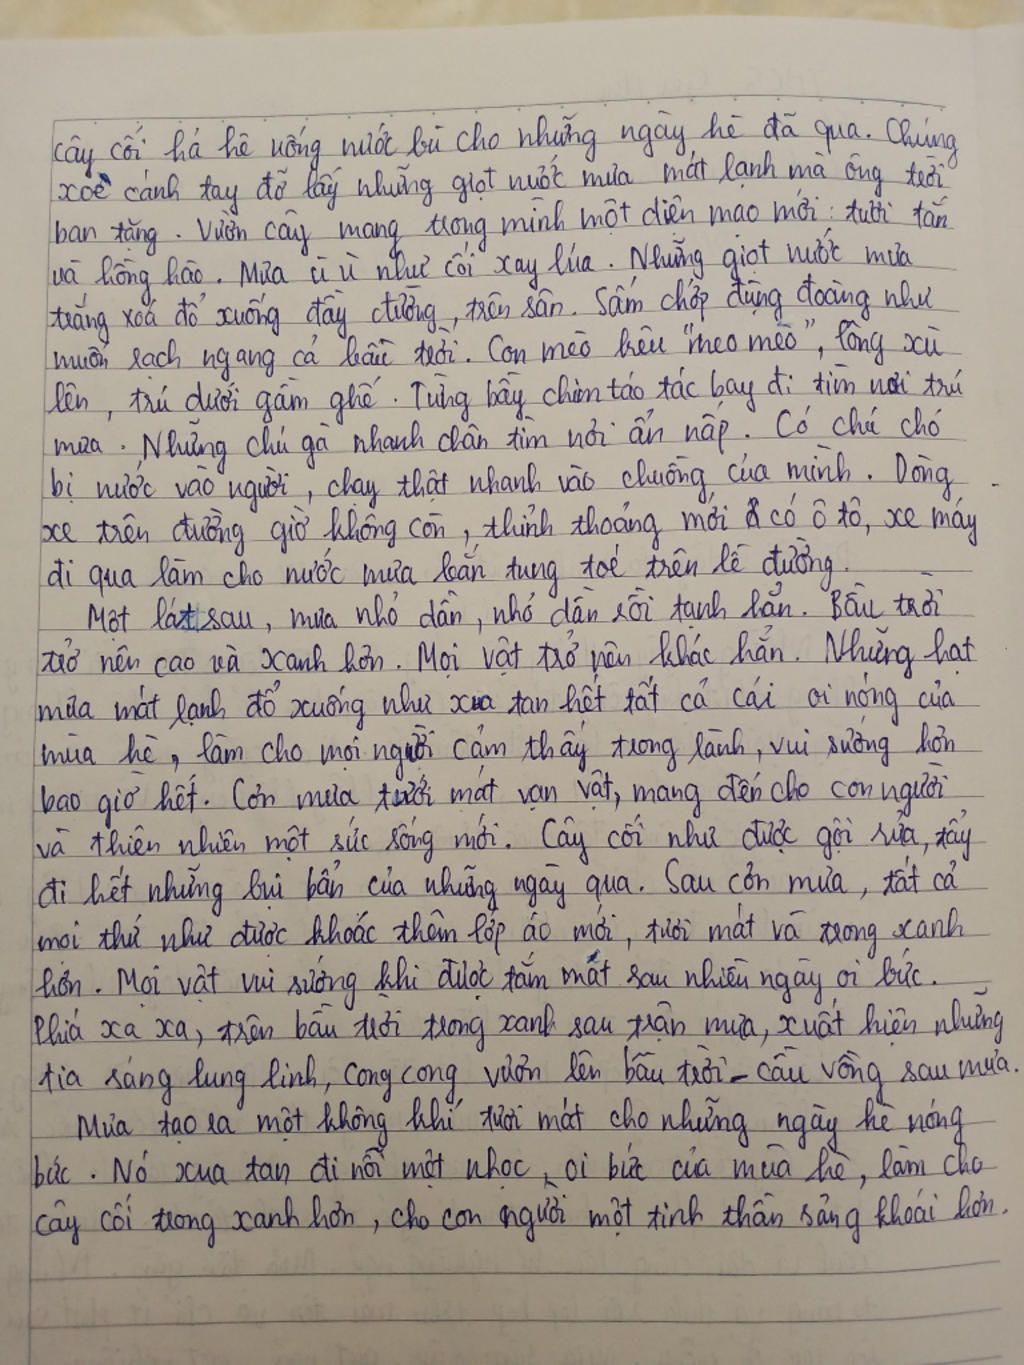 cây cối hả hê uống nước bù cho những ngày hè đã qua. Chúng
xoè cánh tay đỡ lấy những giọt nước mưa mát lạnh mà ông trời
ban tặng. Vườn cây mang trong mình một diện mạo mới: tươi tắn
và hồng hào. Mưa ù ù như cối xay lúa. Những giọt nước mưa
trắng xoá đổ xuống đầy đường, trên sân. Sấm chớp đùng đoàng như
muốn rạch ngang cả bầu trời. Con mèo kêu "meo meo", lông xù
lên, trú dưới gầm ghế. Từng bầy chim táo tác bay đi tìm nơi trú
mưa. Những chú gà nhanh chân tìm nơi ẩn nấp. Có chú chó
bị nước vào người, chạy thật nhanh vào chuồng của mình. Dòng
xe trên đường giờ không còn, thỉnh thoảng mới có ô tô, xe máy
đi qua làm cho nước mưa bắn tung toé trên lề đường.
Một lát sau, mưa nhỏ dần, nhỏ dần rồi tạnh hẳn. Bầu trời
trở nên cao và xanh hơn. Mọi vật trở nên khác hẳn. Những hạt
mưa mát lạnh đổ xuống như xua tan hết tất cả cái oi nóng của
mùa hè, làm cho mọi người cảm thấy trong lành, vui sướng hơn
bao giờ hết. Cơn mưa tưới mát vạn vật, mang đến cho con người
và thiên nhiên một sức sống mới. Cây cối như được gội rửa, tẩy
đi hết những bụi bẩn của những ngày qua. Sau cơn mưa, tất cả
mọi thứ như được khoác thêm lớp áo mới, tươi mát và trong xanh
hơn. Mọi vật vui sướng khi được tắm mát sau nhiều ngày oi bức.
Phía xa xa, trên bầu trời trong xanh sau trận mưa, xuất hiện những
tia sáng lung linh, cong cong vươn lên bầu trời - cầu vồng sau mưa.
Mưa tạo ra một không khí tươi mát cho những ngày hè nóng
bức. Nó xua tan đi nỗi mệt nhọc, oi bức của mùa hè, làm cho
cây cối trong xanh hơn, cho con người một tinh thần sảng khoái hơn.